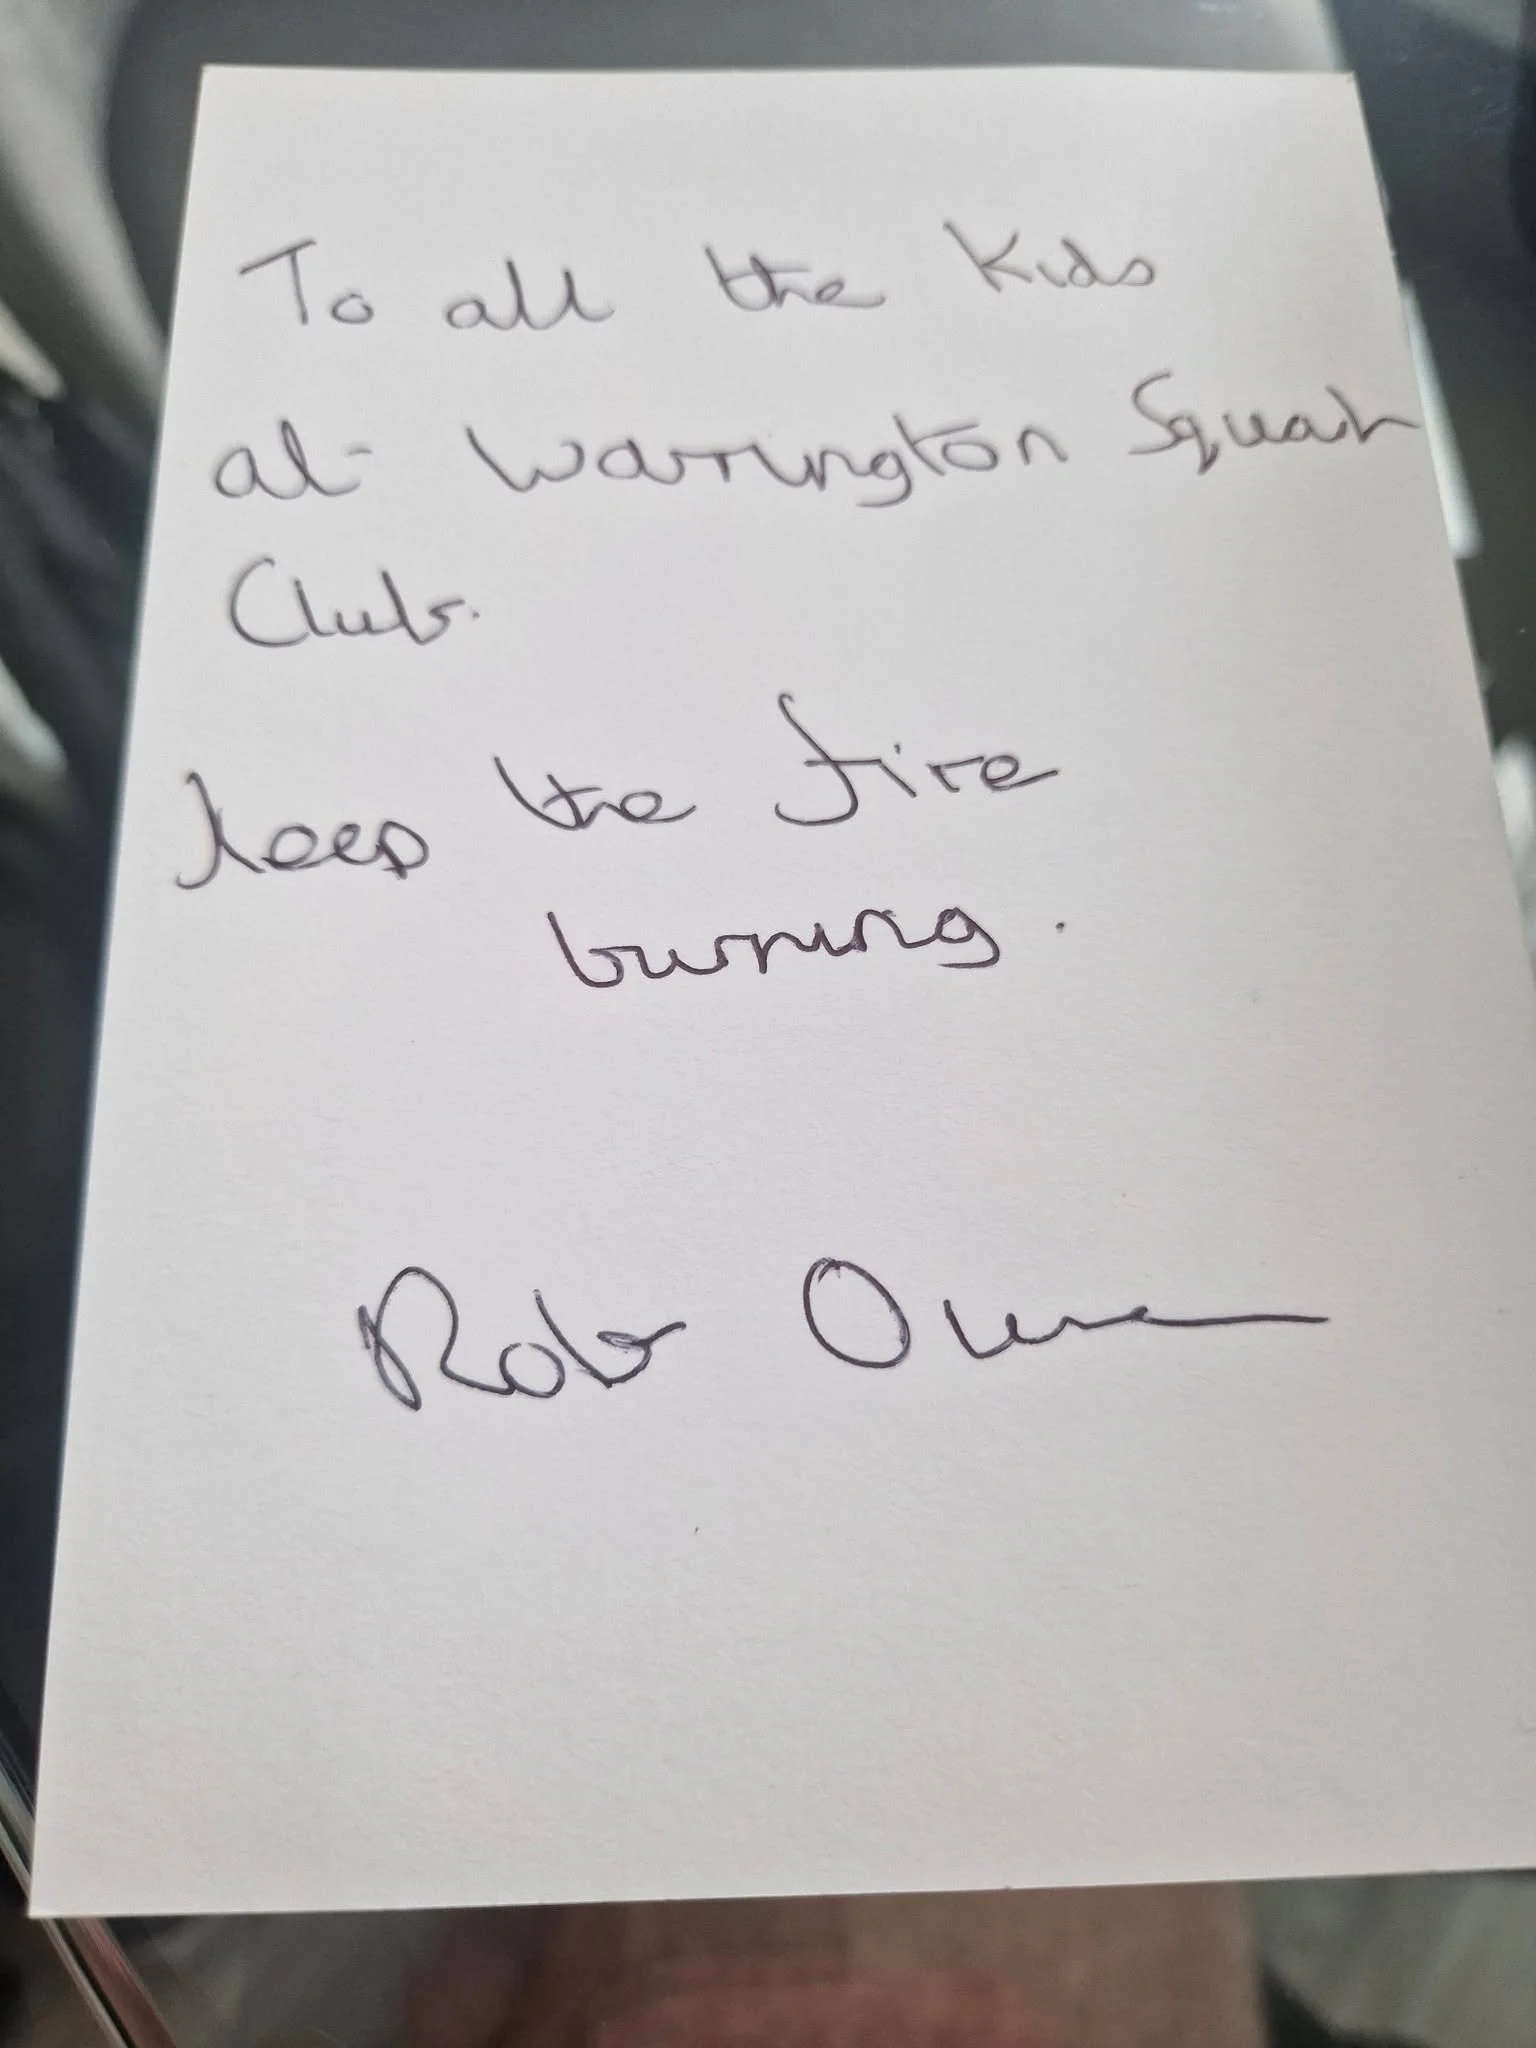 To all the Kids
at Warrington Squash
Club.
keep the fire
burning.
Rob Owen